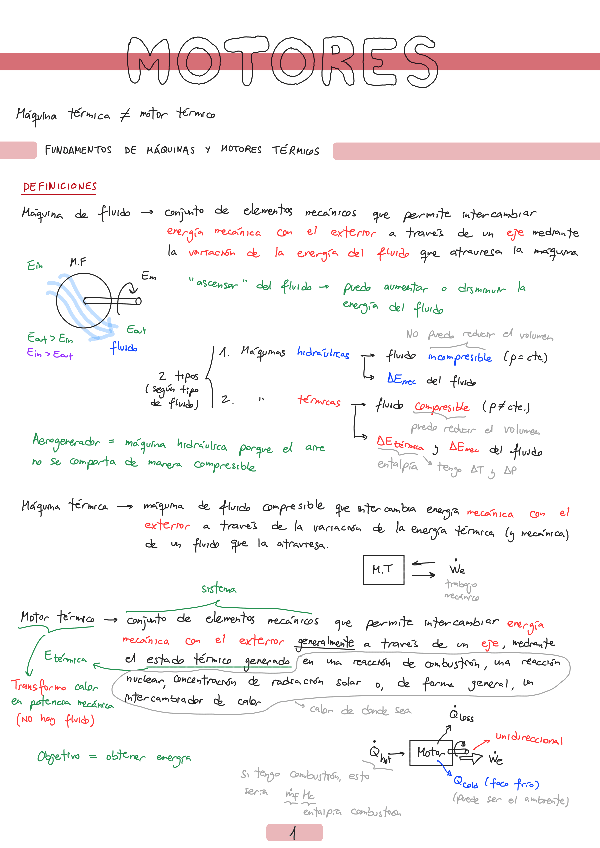 MOTORES
Máquina térmica ≠ motor térmico
FUNDAMENTOS DE MÁQUINAS Y MOTORES TÉRMICOS
DEFINICIONES
Máquina de fluido → conjunto de elementos mecánicos que permite intercambiar
energía mecánica con el exterior a través de un eje mediante
la variación de la energía del fluido que atraviesa la máquina
Ein M.F Em
"ascensor" del fluido → puedo aumentar o disminuir la
energía del fluido
Eout
Eout > Ein
Ein > Eout
fluido
No puedo reducir el volumen
2 tipos
(según tipo
de fluido)
1. Máquinas hidráulicas → fluido incompresible (ρ = cte.)
→ ΔEmec del fluido
2. " térmicas → fluido compresible (ρ ≠ cte.)
puedo reducir el volumen
→ ΔEtérmica y ΔEmec del fluido
entalpía → tengo ΔT y ΔP
Aerogenerador = máquina hidráulica porque el aire
no se comporta de manera compresible
Máquina térmica → máquina de fluido compresible que intercambia energía mecánica con el
exterior a través de la variación de la energía térmica (y mecánica)
de un fluido que la atraviesa.
M.T Ẇe
trabajo
mecánico
sistema
Motor térmico → conjunto de elementos mecánicos que permite intercambiar energía
mecánica con el exterior generalmente a través de un eje, mediante
el estado térmico generado en una reacción de combustión, una reacción
nuclear, concentración de radiación solar o, de forma general, un
intercambiador de calor
Etérmica
Transformo calor
en potencia mecánica
(NO hay fluido)
calor de donde sea
Objetivo = obtener energía
Q̇loss
unidireccional
Q̇hot → Motor Ẇe
Qcold (foco frío)
(puede ser el ambiente)
si tengo combustión, esto
sería ṁf Hc
entalpía combustión
1